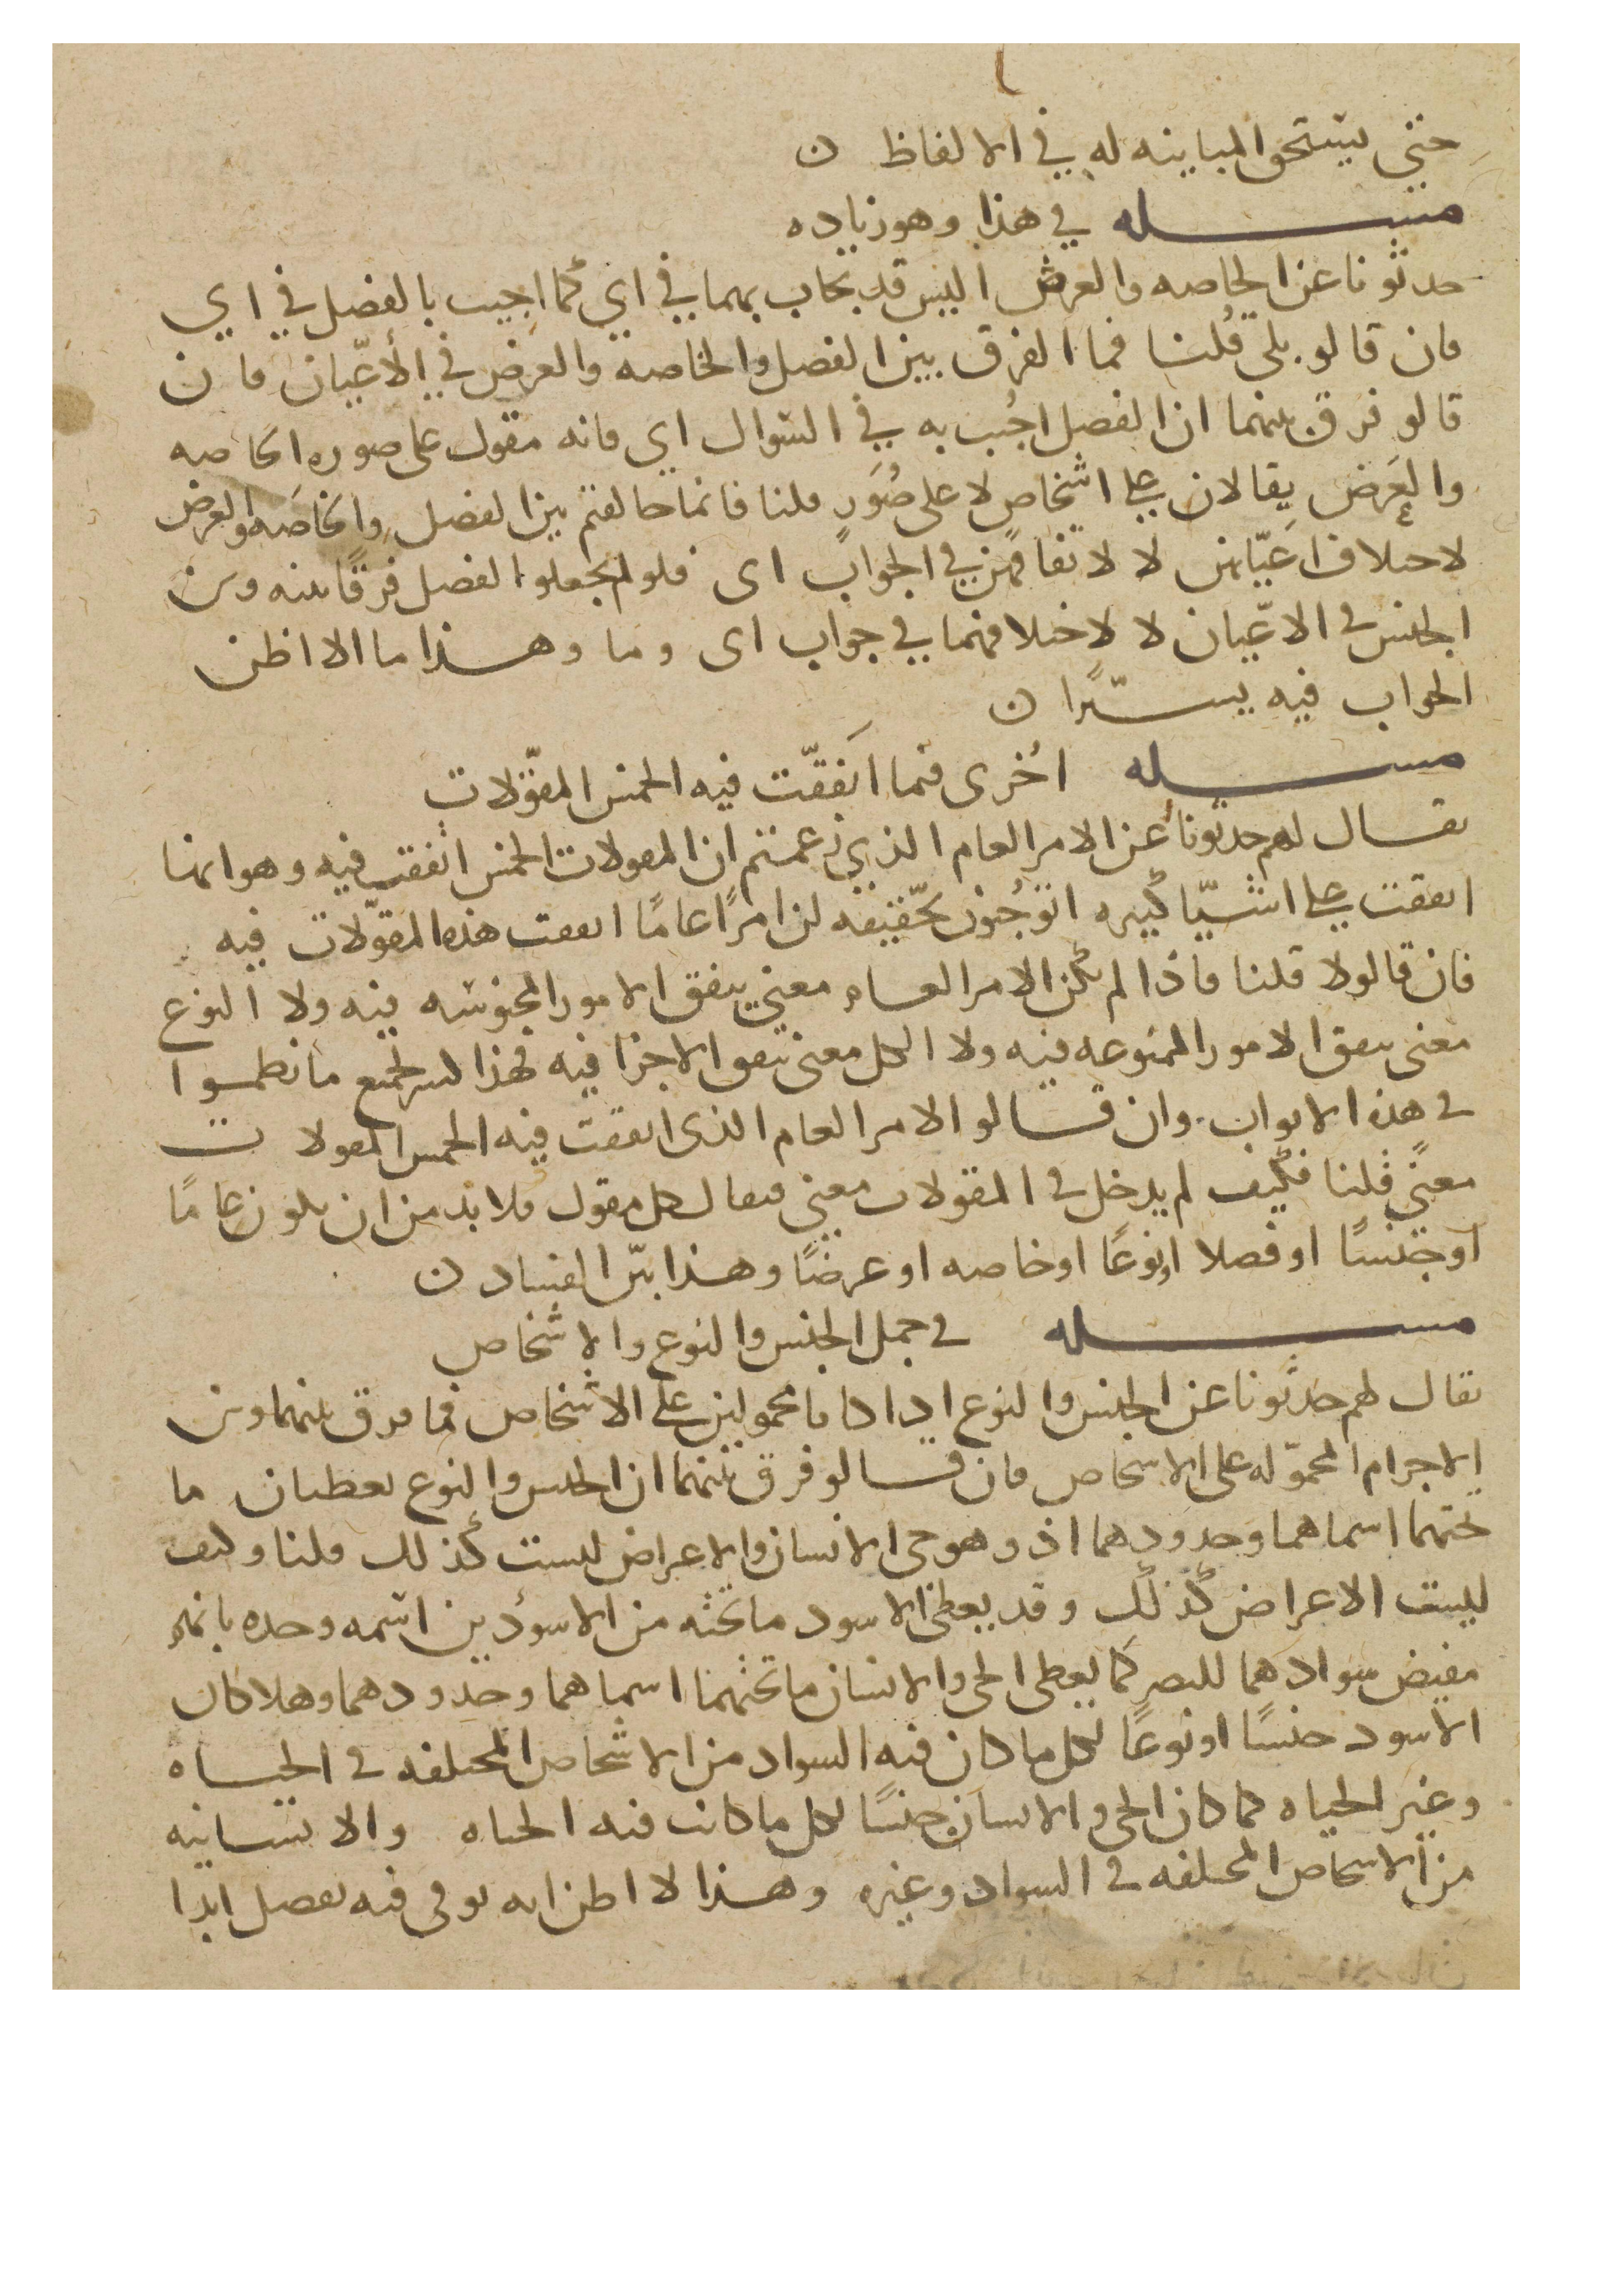 حتى يستحق المباينه له في الالفاظ ن
مسله في هذا وهو زياده
حدثونا عن الخاصه والعرض اليس قد يجاب بهما في اي كما اجيب بالفصل في اي
فان قالو بلى قُلنا فما الفرق بين الفصل والخاصه والعرض في الأعيّان فان
قالو فرق بينهما ان الفصل اجُيب به في السوال اي فانه مقول على صوره الخاصه
والعَرض يقالان على اشخاص لا على صُوَر قلنا فانما خالفتم بين الفصل والخاصَه والعرض
لاختلاف اعَيّانهن لا لاتفاقهن في الجواب اى فلو لم يجعلو الفصل فرقًا بينه وبين
الجنس في الاعّيان لا لاختلافهما في جواب اى وما وهذا ما الا اظن
الجواب فيه يسيّرًا ن
مسله اخُرى فيما اتفقّت فيه الخمس المقوّلات
يقال لهم حدثونا عن الامر العام الذي زعمتم ان المقولات الخمس اتفقت فيه وهو انها
اتفقت على اشيّا كثيره اتوجُبون بحقّيقه ان امرًا عامًا اتفقت هذه المقوّلات فيه
فان قالو لا قلنا فاذا لم يكن الامر العام معني يتفق الامور المجنوسه فيه ولا النوع
معنى يتفق الامور المنوعه فيه ولا الكل معنى يتفق الاجزا فيه فهذا كسر لجميع ما نظموا
في هذه الابواب وان قالو الامر العام الذى اتفقت فيه الخمس المقولات
معنًى قلنا فكيف لم يدخل في المقولات معني فيقال كل مقول فلا بد من ان يكون عامًا
او جنسًا او فصلا او نوعًا او خاصه او عرضًا وهذا بيّن الفساد ن
مسله في حمل الجنس والنوع والاشخاص
يقال لهم حدثونا عن الجنس والنوع اذا كانا محمولين على الاشخاص فما فرق بينهما وبين
الاجرام المحموّله على الاشخاص فان قالو فرق بينهما ان الجنس والنوع يعطيان ما
تحتهما اسماهما وحدودهما اذ وهو حى الانسان والاعراض ليست كذلك قلنا وكيف
ليست الاعراض كذلك وقد يعطى الاسود ما تحته من الاسودين اسمه وحده بانهم
مفيض سوادهما للبصر كما يعطى الحى والانسان ما تحتهما اسماهما وحدودهما وهلا كان
الاسود جنسًا او نوعًا لكل ما كان فيه السواد من الاشخاص المختلفه في الحياه
وغير الحياه كما كان الحى والانسان جنسًا لكل ما كانت فيه الحياه والانسانيه
من الاشخاص المختلفه في السواد وغيره وهذا لا اظن انه يوفى فيه بفصل ابدا